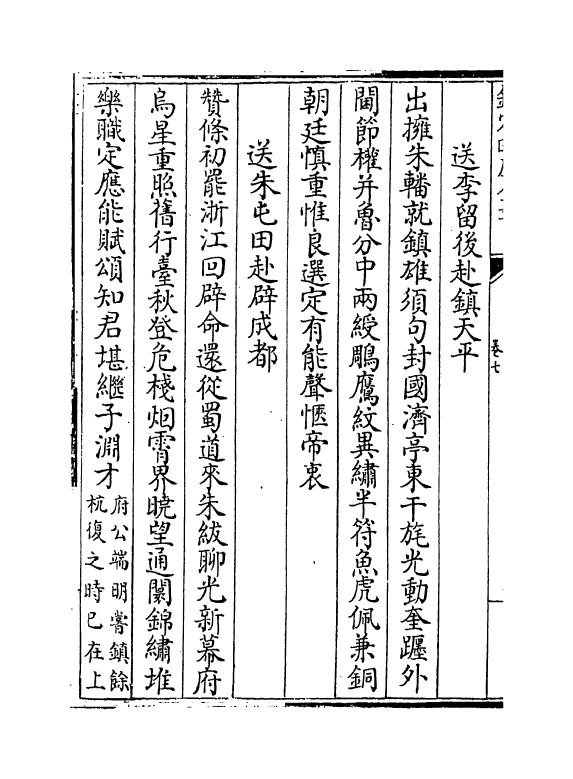 卷七
送李留後赴鎮天平
出擁朱轓就鎮雄須句封國濟亭東干旄光動奎躔外
閫節權并魯分中兩綬鵰鷹紋異繡半符魚虎佩兼銅
朝廷慎重惟良選定有能聲愜帝衷
送朱屯田赴辟成都
贊條初罷浙江回辟命還從蜀道來朱紱聊光新幕府
烏星重照舊行臺秋登危棧烟霄界曉望通闤錦繡堆
樂職定應能賦頌知君堪繼子淵才府公端明嘗鎮餘
杭復之時已在上